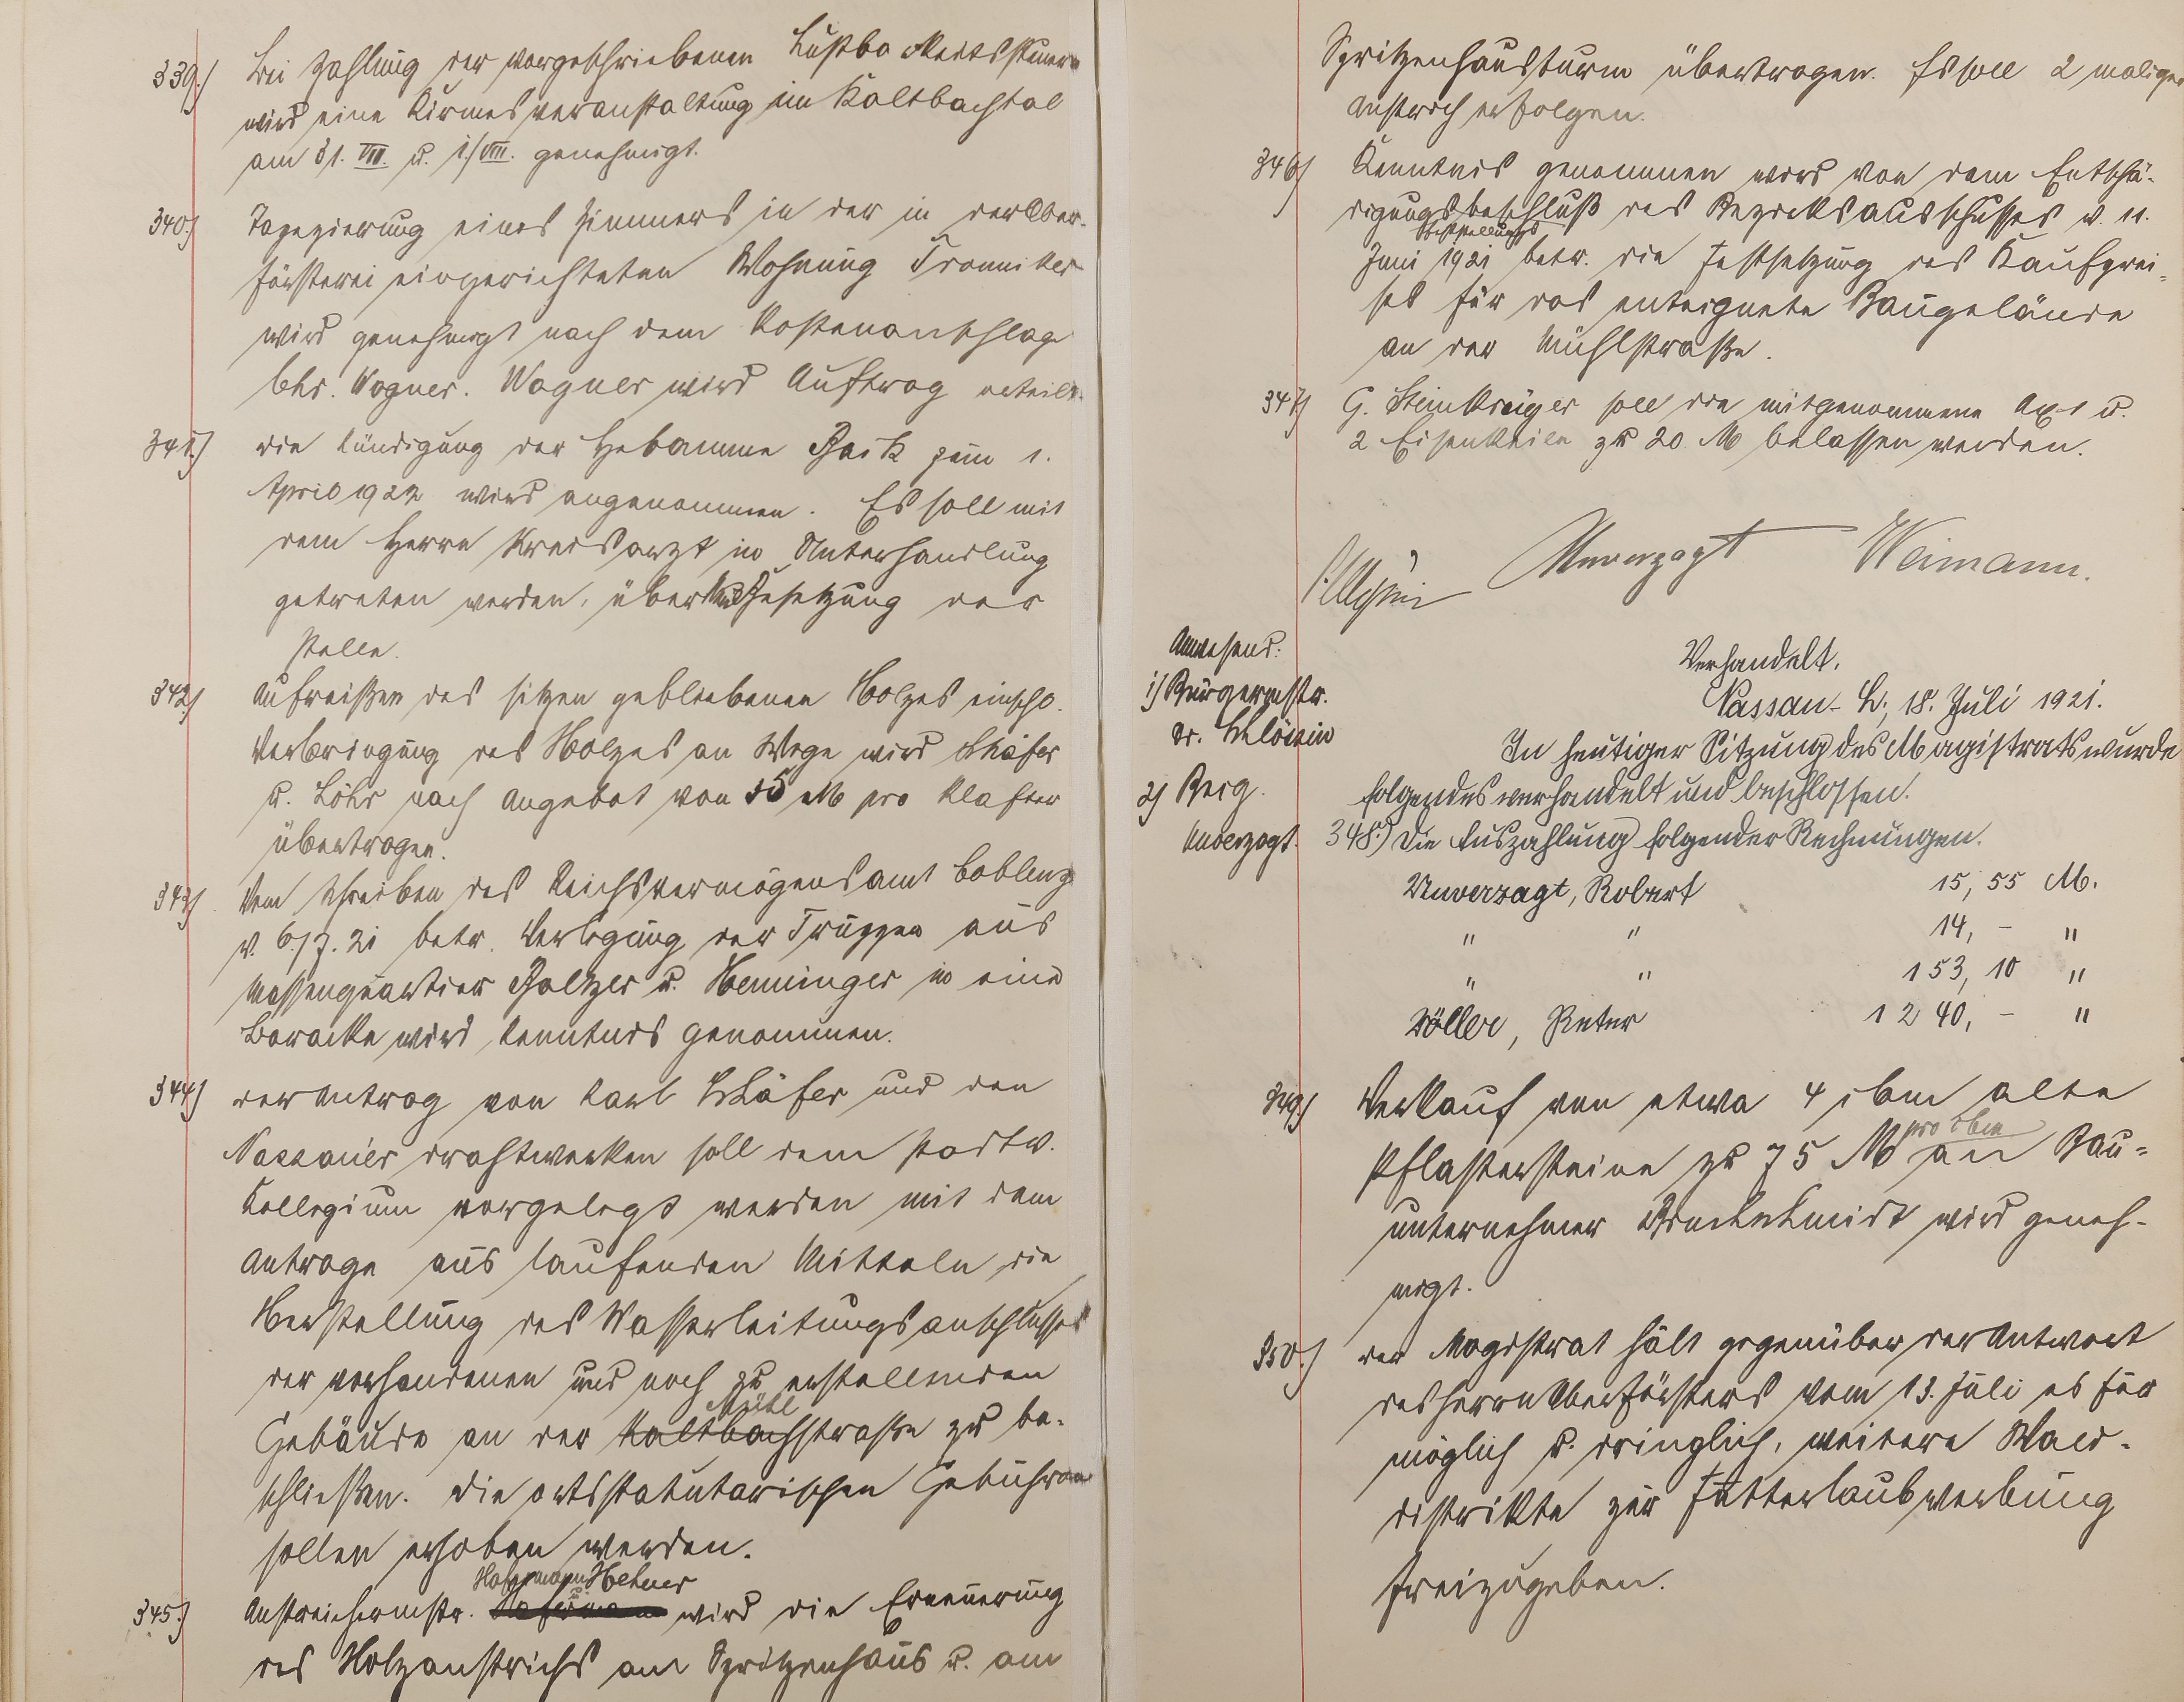 339.) Bei Zahlung der vorgeschriebenen Lustbarkeitssteuern
wird eine Kirmesveranstaltung im Kaltbachtal
am 31. VII. u. 1./VIII. genehmigt.
340.) Tapezierung eines Zimmers in der in der Ober-
försterei eingerichteten Wohnung Tronniker
wird genehmigt nach dem Kostenanschlag
Chr. Wagner. Wagner wird Auftrag erteilt.
341.) die Kündigung der Hebamme Back zum 1.
April 1922 wird angenommen. Es soll mit
dem Herrn Kreisarzt in Unterhandlung
getreten werden, über Besetzung der
Stelle.
342.) Aufreißen des sitzen gebliebenen Holzes einschl.
Verbringung des Holzes an Wege wird Schäfer
u. Löhr nach Angebot von 35 M pro Klafter
übertragen.
343.) Vom Schreiben des Reichsvermögensamt Coblenz
v. 6./7. 21 betr. Verlegung der Truppen aus
Massenquartier Balzer u. Henninger in eine
Baracke wird Kenntnis genommen.
344.) der Antrag von Karl Schäfer und den
Nassauer Drahtwerken soll dem Stadtv.
Kollegium vorgelegt werden mit dem
Antrage aus laufenden Mitteln die
Herstellung des Wasserleitungsanschlusses
der vorhandenen und noch zu erstellenden
Mühl
Gebäude an der Kaltbachstraße zu be-
schließen. Die ortsstatutarischen Gebühren
sollen erhoben werden.
Hofmann u. Hehner
345.) Anstreichermstr. wird die Erneuerung
des Holzanstrichs am Spritzenhaus u. am
Spritzenhausturm übertragen. Es soll 2 maliger
Anstrich erfolgen.
346.) Kenntnis genommen wird von dem Entschä-
digungsbeschluß des Bezirksausschusses v. 11.
Juni 1921 betr. die Festsetzung des Kaufprei-
ses für das enteignete Baugelände
an der Mühlstraße.
347.) G. Steinkräuger soll die mitgenommene Axt u.
2 Eisenkeile zu 20 M belassen werden.
Unverzagt Weimann.
Anwesend:
1) Bürgermstr.
Dr. Schlösin
2) Berg.
Unverzagt.
Verhandelt.
Nassau-L., 18. Juli 1921.
In heutiger Sitzung des Magistrats wurde
folgendes verhandelt und beschlossen.
348.) Die Auszahlung folgender Rechnungen.
Unverzagt, Robert 15,55 M.
" " 14, - "
" " 153, 10 "
Völler, Peter 1240, - "
349.) Verkauf von etwa 4 cbm alte
pro cbm
Pflastersteine zu 75 M an Bau-
unternehmer Bruchschmidt wird geneh-
migt.
350.) der Magistrat hält gegenüber der Antwort
des Herrn Oberförsters vom 13. Juli es für
möglich u. dringlich, weitere Wald-
distrikte zur Futterlaubwerbung
freizugeben.